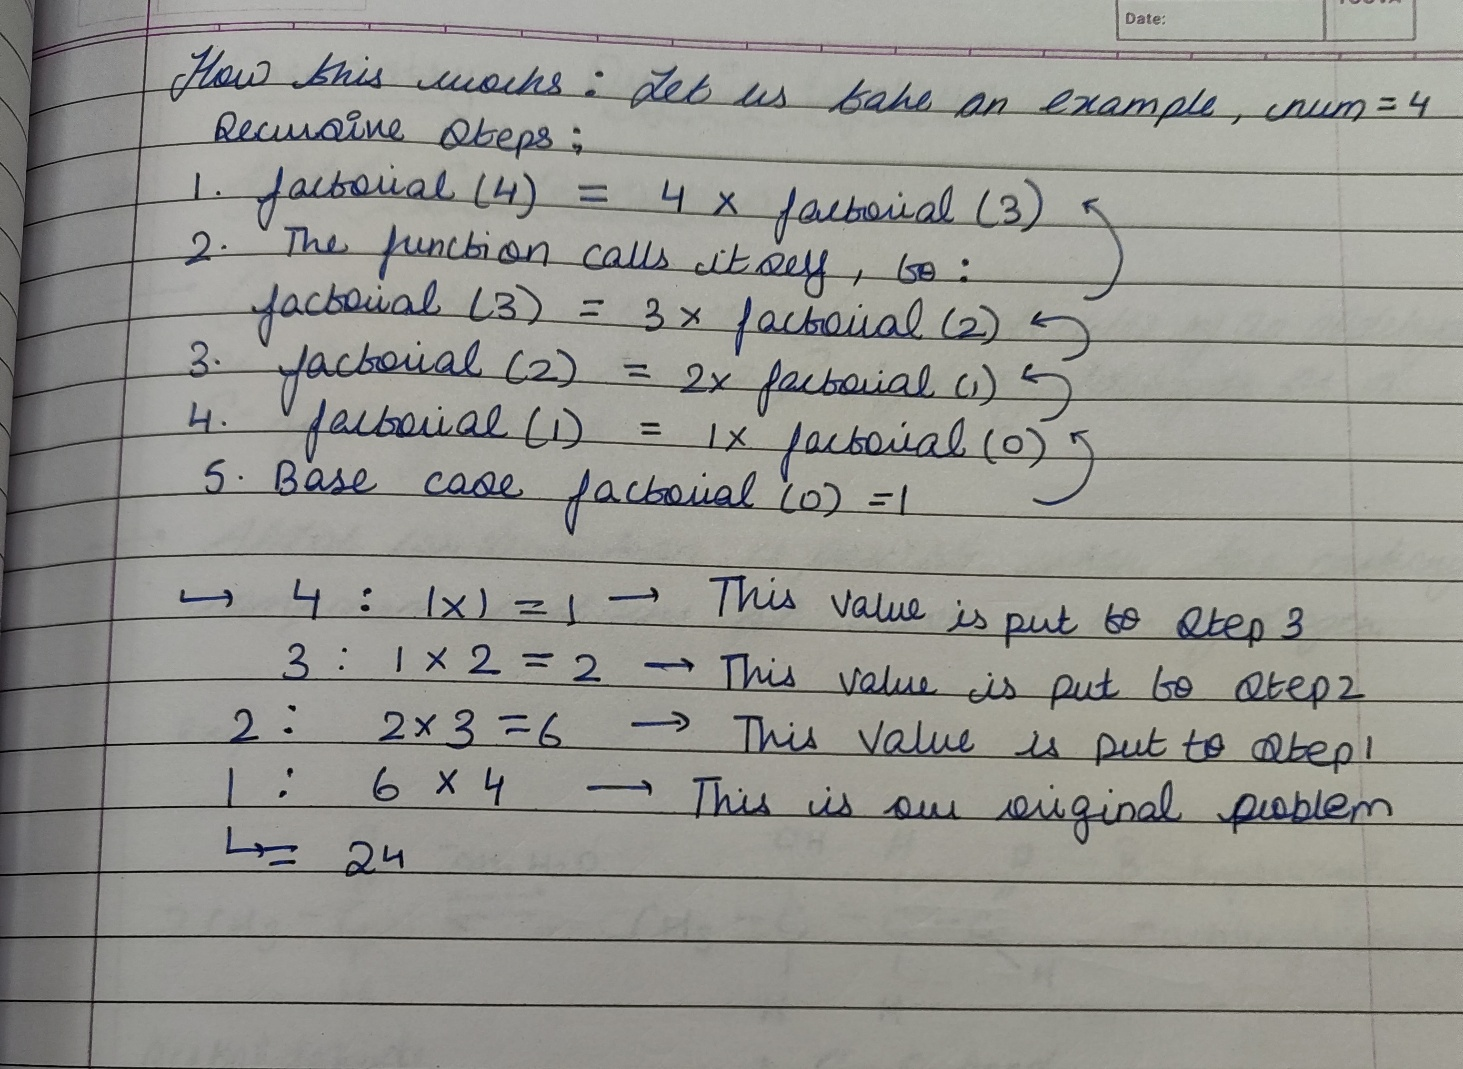 Date:
How this works: Let us take an example, num = 4
Recursive Steps:
1. factorial (4) = 4 x factorial (3)
2. The function calls itself, to:
factorial (3) = 3 x factorial (2)
3. factorial (2) = 2x factorial (1)
4. factorial (1) = 1x factorial (0)
5. Base case factorial (0) = 1
↪ 4 : 1x1 = 1 → This value is put to Step 3
3 : 1 x 2 = 2 → This value is put to Step 2
2 : 2 x 3 = 6 → This value is put to Step 1
1 : 6 x 4 → This is our original problem
↳ = 24